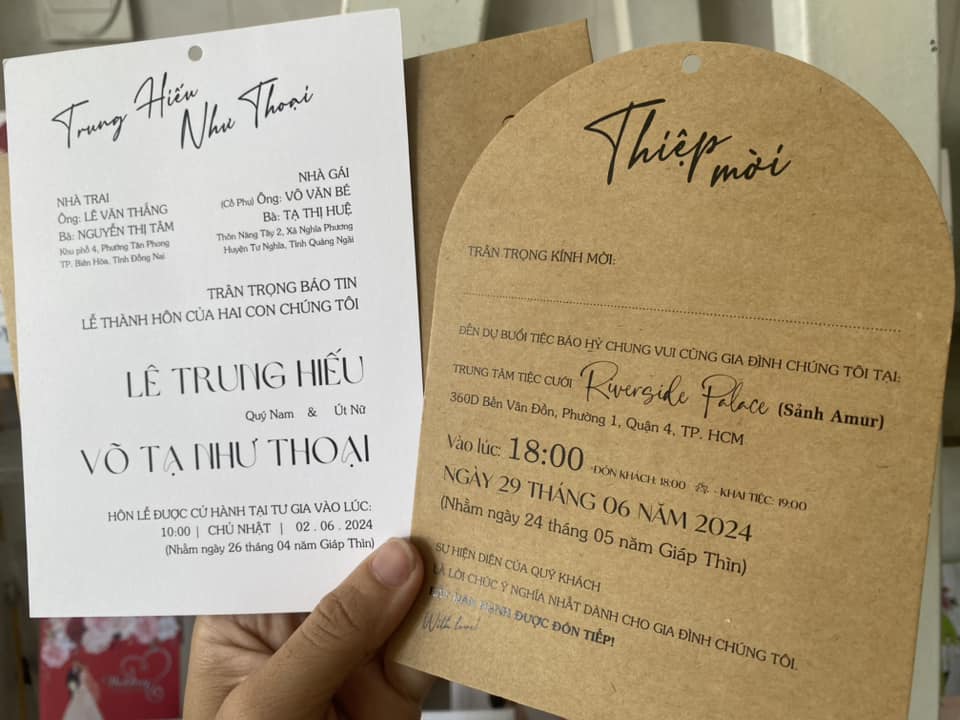 Trung Hiếu
Như Thoại
NHÀ TRAI
Ông: LÊ VĂN THẮNG
Bà: NGUYỄN THỊ TÂM
Khu phố 4, Phường Tân Phong
TP. Biên Hòa, Tỉnh Đồng Nai
NHÀ GÁI
(Cố Phụ) Ông: VÕ VĂN BÉ
Bà: TẠ THỊ HUỆ
Thôn Nàng Tây 2, Xã Nghĩa Phương
Huyện Tư Nghĩa, Tỉnh Quảng Ngãi
TRÂN TRỌNG BÁO TIN
LỄ THÀNH HÔN CỦA HAI CON CHÚNG TÔI
LÊ TRUNG HIẾU
Quý Nam & Út Nữ
VÕ TẠ NHƯ THOẠI
HÔN LỄ ĐƯỢC CỬ HÀNH TẠI TƯ GIA VÀO LÚC:
10:00 | CHỦ NHẬT | 02 . 06 . 2024
(Nhằm ngày 26 tháng 04 năm Giáp Thìn)
Thiệp mời
TRÂN TRỌNG KÍNH MỜI:
ĐẾN DỰ BUỔI TIỆC BÁO HỶ CHUNG VUI CÙNG GIA ĐÌNH CHÚNG TÔI TẠI:
TRUNG TÂM TIỆC CƯỚI Riverside Palace (Sảnh Amur)
360D Bến Vân Đồn, Phường 1, Quận 4, TP. HCM
Vào lúc: 18:00 -ĐÓN KHÁCH: 18:00 - KHAI TIỆC: 19:00
NGÀY 29 THÁNG 06 NĂM 2024
(Nhằm ngày 24 tháng 05 năm Giáp Thìn)
SỰ HIỆN DIỆN CỦA QUÝ KHÁCH
LÀ LỜI CHÚC Ý NGHĨA NHẤT DÀNH CHO GIA ĐÌNH CHÚNG TÔI.
HÂN HẠNH ĐƯỢC ĐÓN TIẾP!
With love!